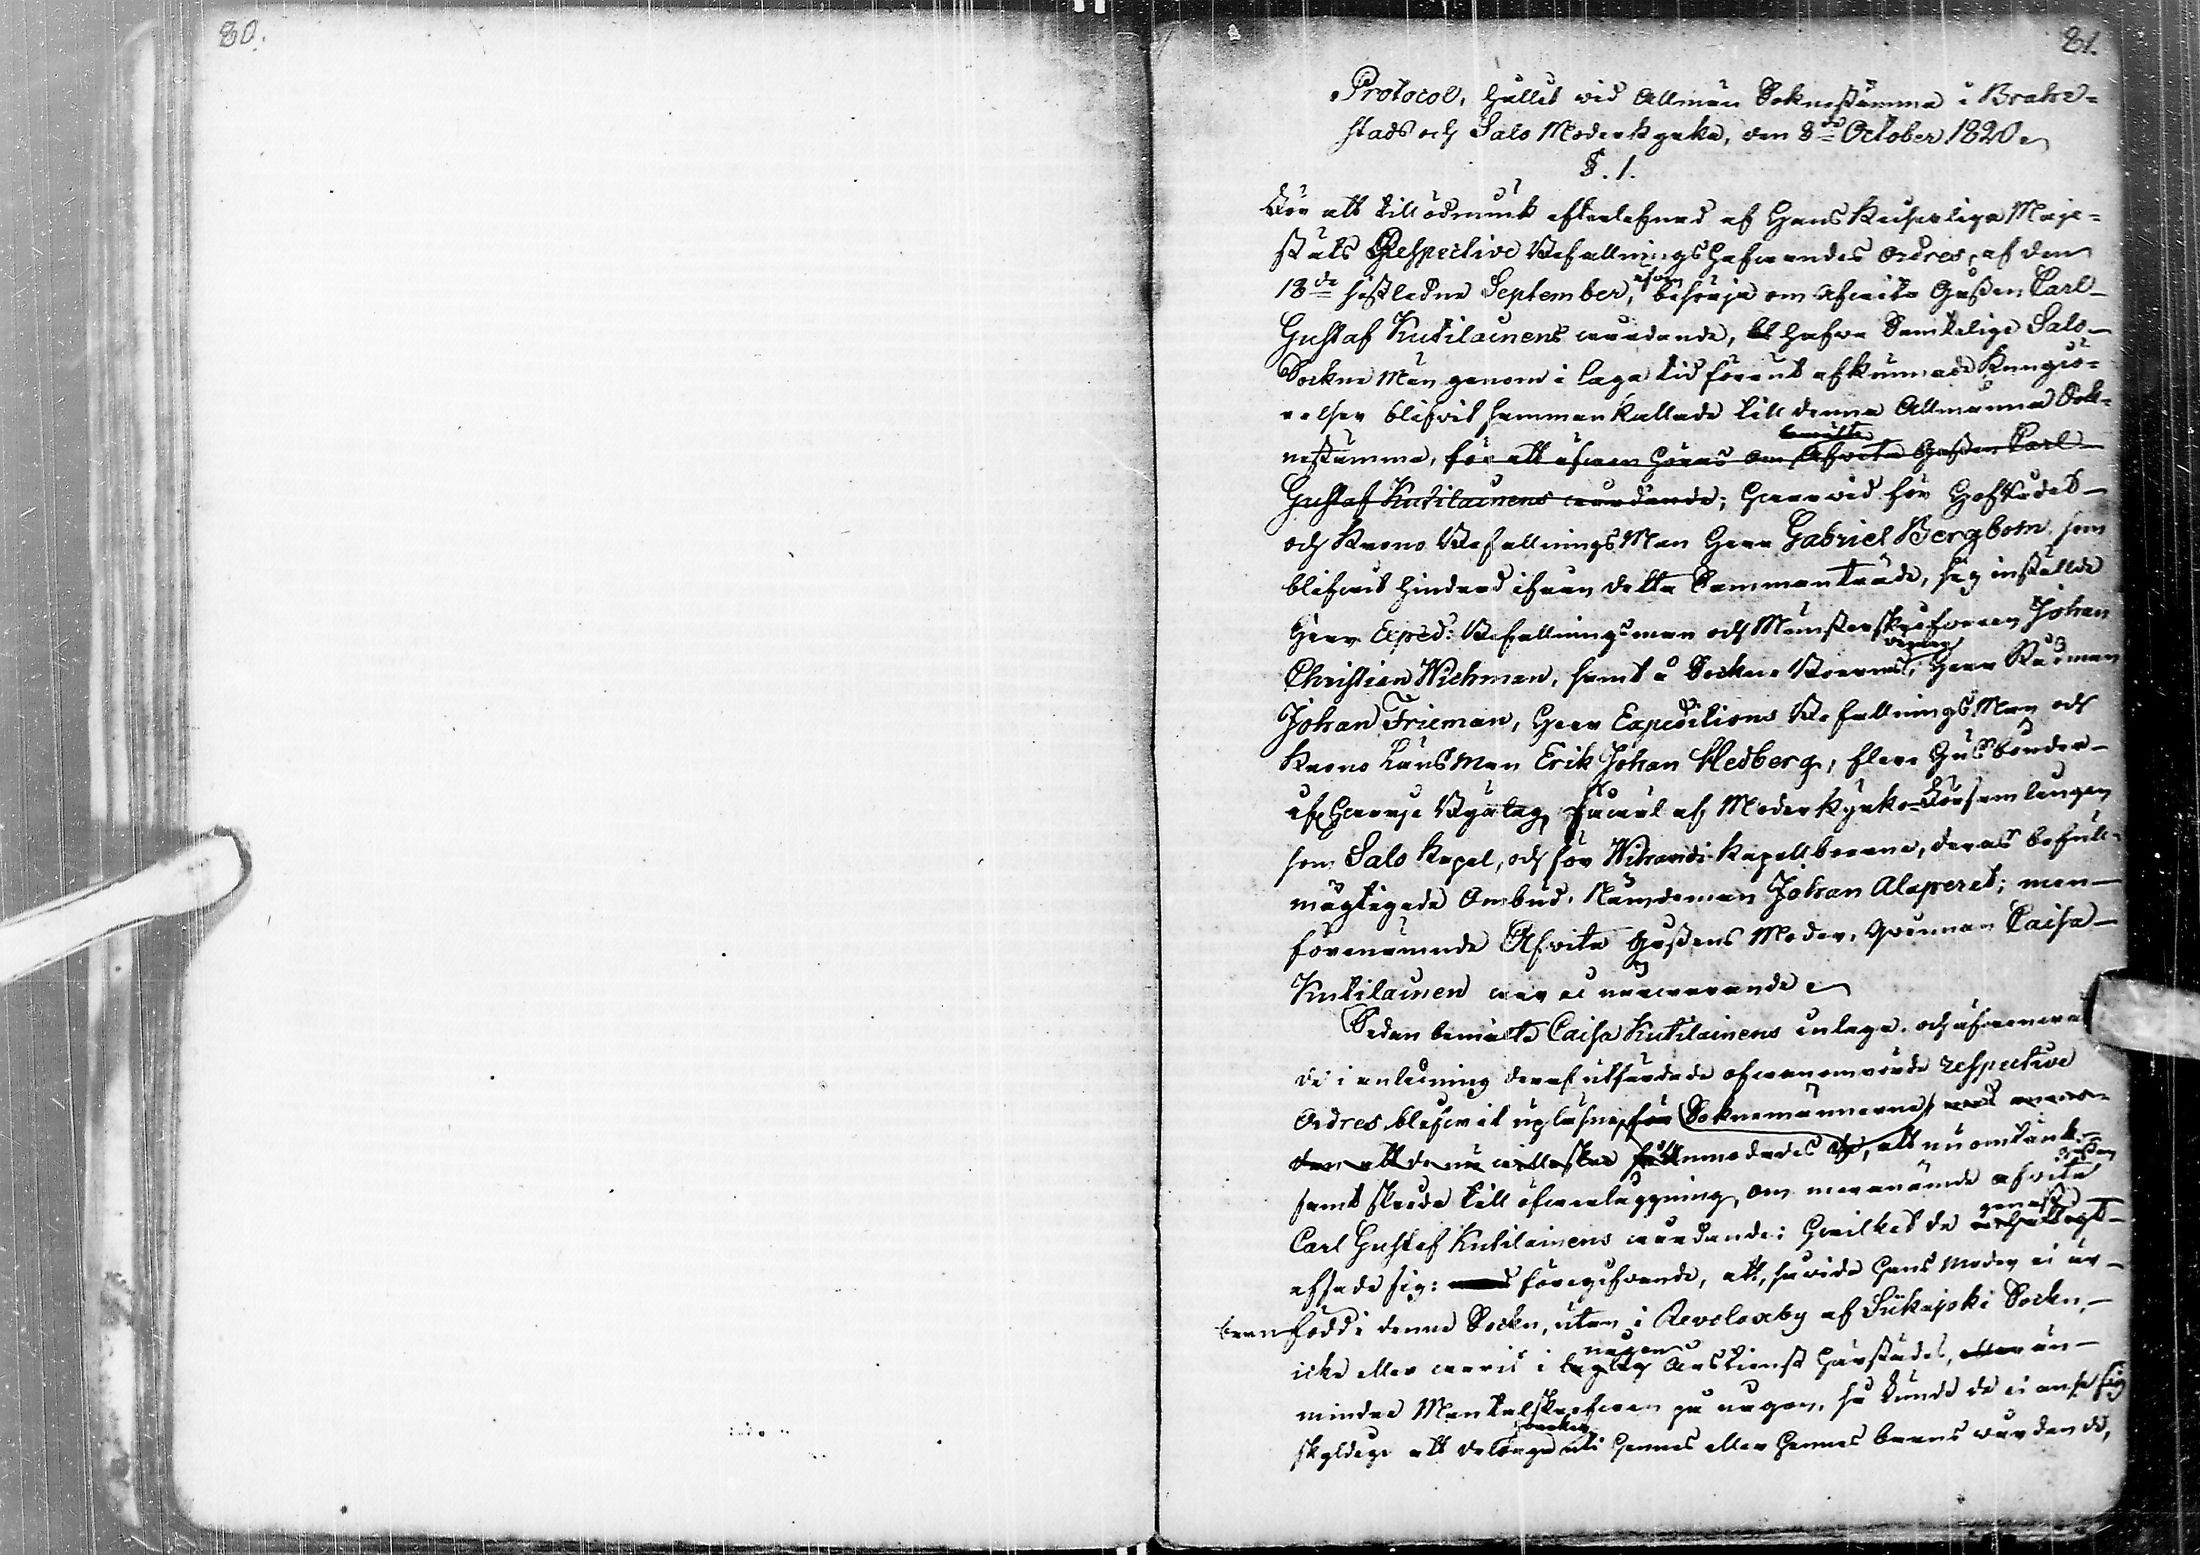 80.
81.
Protocol, hållet wid Allmän Soknestämma i Brahe-
stads och Salo Moderkyrka, den 8de October 1820.
§. 1.
För att till ödmiuk efterlefnad af Hans Keiserliga Maje-
stäts Respective Befallningshafwandes ordres, af den
18de sistledne September, besörja om Afwita Gossen Carl
Gustaf Kutilainens wårdande, hafwa Samtelige Salo
Sockne Män genom i laga tid förut afkunnade Kungiö-
relser blifwit sammankallade till denna Allmänna Sok-
nestämma, för att äfwen höras om bemälte Afwita Gossen Carl
Gustaf Kutilainens wårdande; Hwarwid för Häftades
och Krono BefallningsMan Herr Gabriel Bergbom, som
blifwit hindrad ifrån detta Sammanträde, sig instälde
Herr Exped: Befallningsman och Mönsterskrifwaren Johan
Christian Wichman, samt å Sockne Boernes wägnar, Herr Rådman
Johan Frieman, Herr Expeditions BefallningsMan och
Krono LänsMan Erik Johan Hedberg, flere Husbönder
af Hwarje Byalag, så wäl af Moderkyrko-Församlingen
som Salo Kapel, och för Wihandi Kapellboerne, deras befull-
mägtigade Ombud, Nämdeman Johan Alaperet; men
förenämnde Afwita Gossens Moder, Qwinnan Caisa
Kutilainen war ei närwarande.
Sedan bemälte Caisa Kutilainens inlaga, och
de i anledning deraf utfärdade ofwananrörde respective
Ordres blifwit upläsne, för Soknemännerne,
anmodades de, att nu omtänk-
samt skrida till öfwerläggning, om meranämde afwita gossen
Carl Gustaf Kutilainens wårdande: Hwilket de genast
afsade sig: föregifwande, att, såwida Hans Moder ei är
barn född i denna Sockn, utan i Revolax by af Siikajoki Sockn,
icke eller warit i någon laglig Årstienst härstädes, eller än
mindre Mantalskrifwen på någon, så kunde de ei anse sig
skyldige att deltaga uti hwarken Hennes eller Hennes barns wårdande,